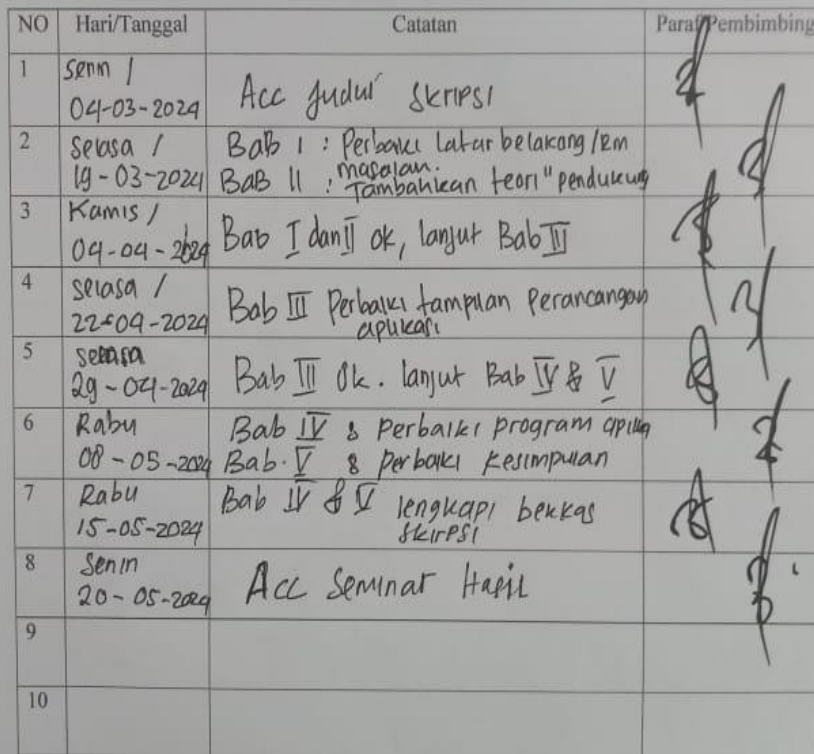 NO Hari/Tanggal Catatan Paraf Pembimbing
1 Senin /
04-03-2024 Acc Judul Skripsi
2 Selasa / Bab I : Perbaiki Latar belakang /Rm
masalah.
19-03-2024 BAB II : Tambahkan teori" pendukung
3 Kamis /
04-04-2024 Bab I dan II ok, lanjut Bab III
4 selasa /
22-04-2024 Bab III Perbaiki tampilan Perancangan
aplikasi
5 selasa
29-04-2024 Bab III Ok. lanjut Bab IV & V
6 Rabu Bab IV : perbaiki program aplika
08-05-2024 Bab. V : perbaiki Kesimpulan
7 Rabu Bab IV & V lengkapi berkas
15-05-2024 skirpsi
8 Senin
20-05-2024 Acc Seminar Hasil
9
10